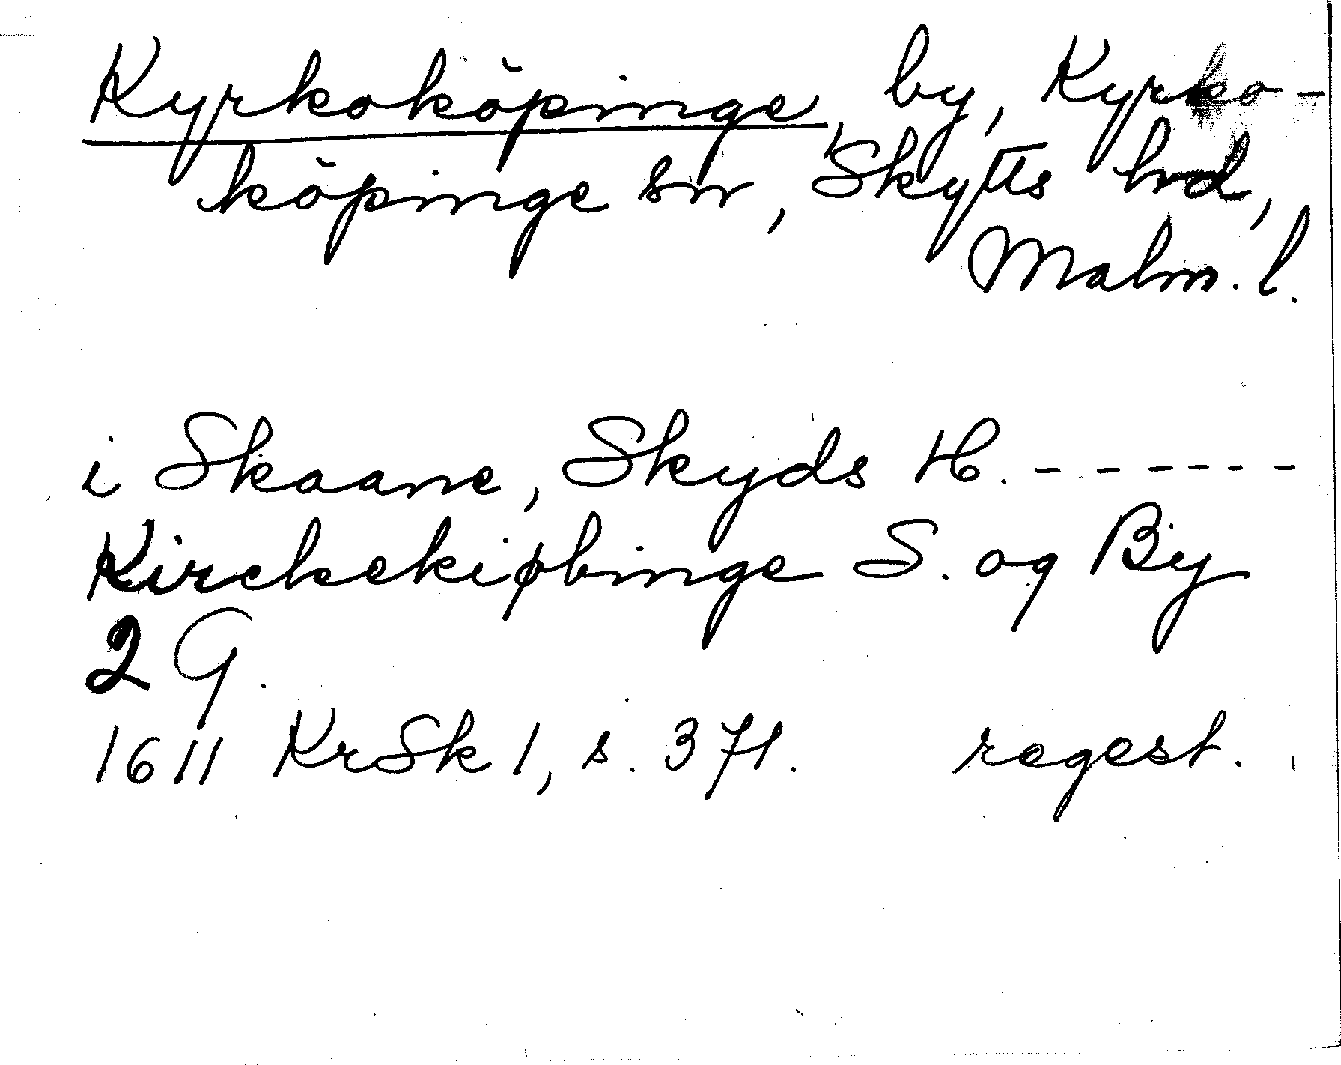 Kyrkoköpinge, by, Kyrko-
köpinge sn, Skytts hrd,
Malm. l.
i Skaane, Skyds H. ------
Kirckekiøbinge S. og By
2 G.
1611 KrSk 1, s. 371. regest.